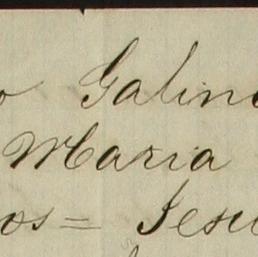 o Galin
Maria
os = Jesu